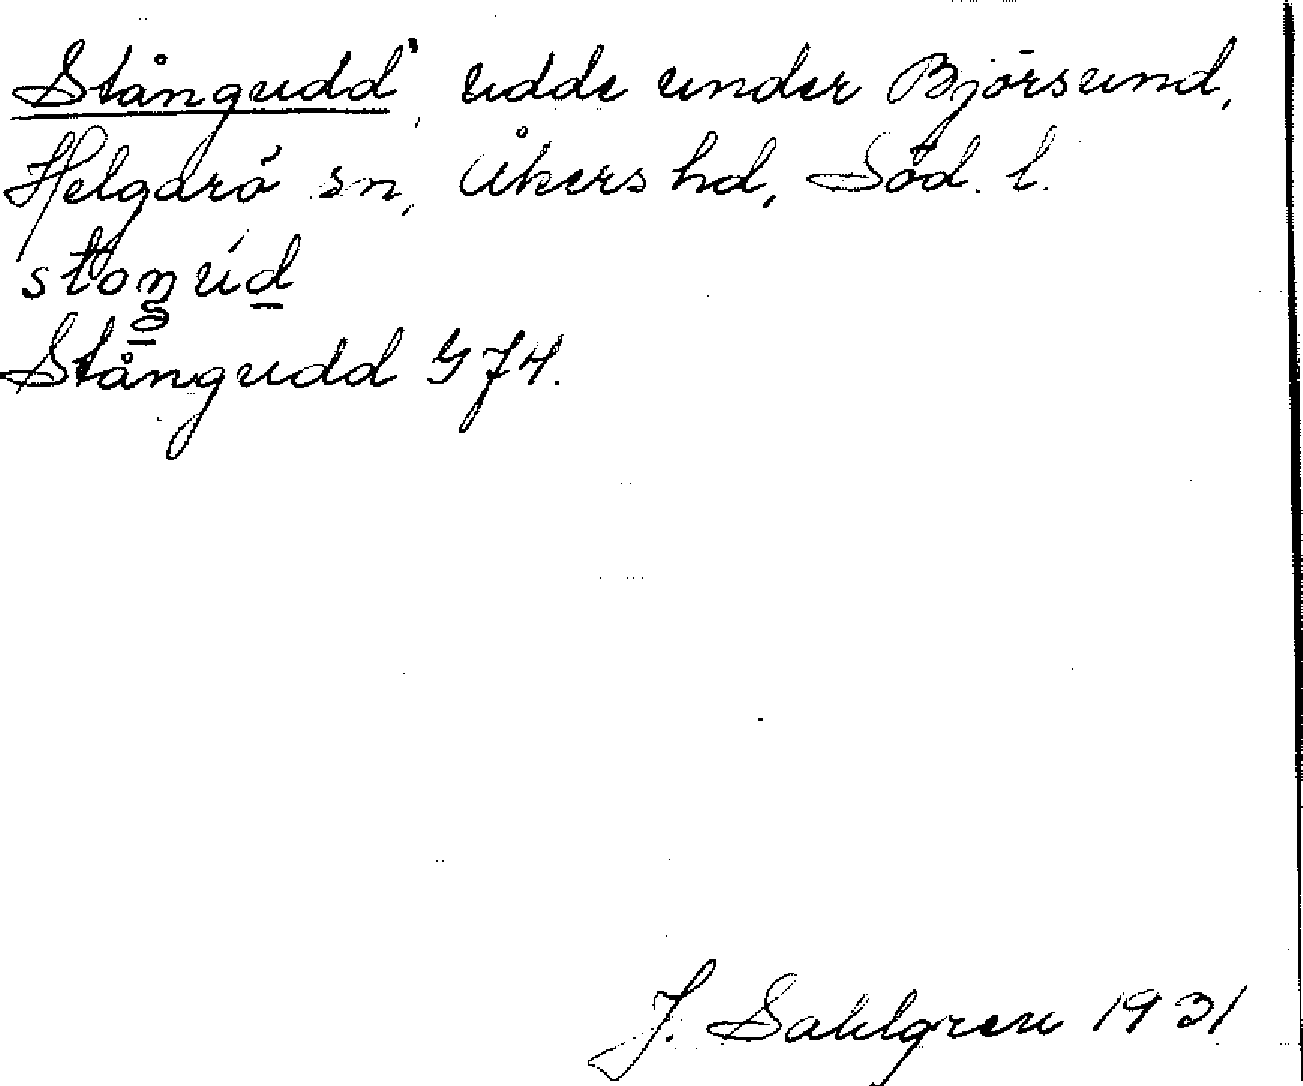 Stångudd, udde under Björsund,
Helgarö sn, Åkers hd, Söd. l.
Stångudd G74.
J. Sahlgren 1931